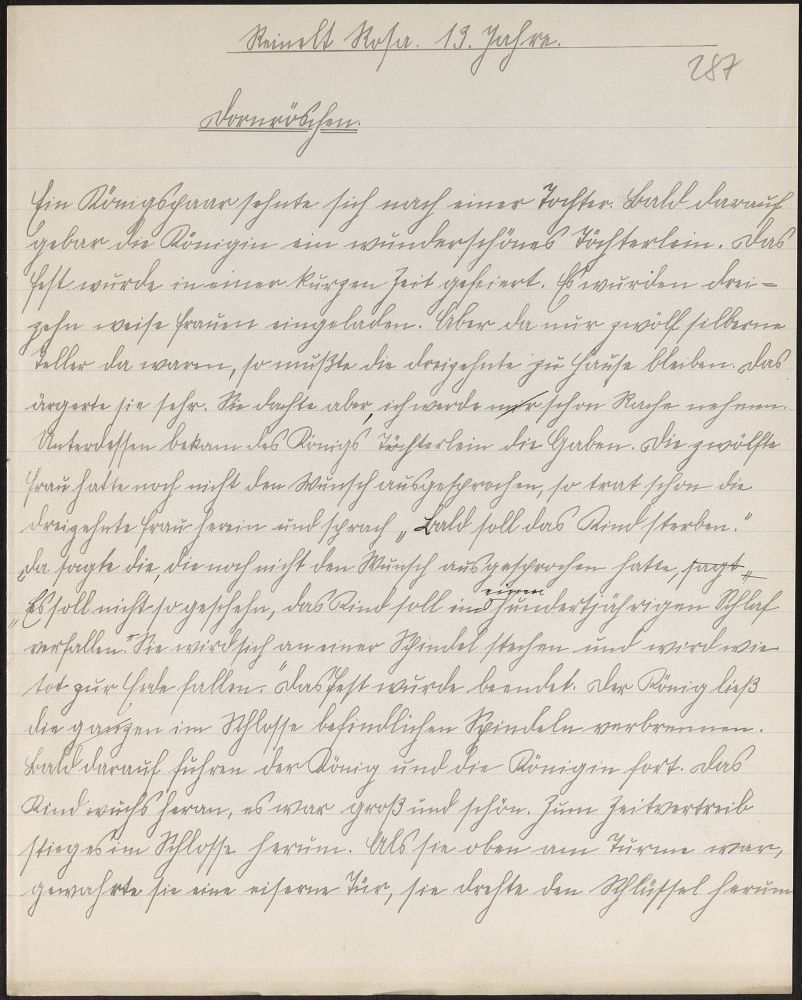 Reinelt Rosa. 13. Jahre.
287
Dornröschen.
Ein Königspaar sehnte sich nach einer Tochter. Bald darauf
gebar die Königin ein wunderschönes Töchterlein. Das
Fest wurde in einer kurzen Zeit gefeiert. Es wurden drei-
zehn weise Frauen eingeladen. Aber da nur zwölf silberne
Teller da waren, so mußte die dreizehnte zu Hause bleiben. Das
ärgerte sie sehr. Sie dachte aber, ich werde mir schon Rache nehmen.
Unterdessen bekam des Königs Töchterlein die Gaben. Die zwölfte
Frau hatte noch nicht den Wunsch ausgesprochen, so trat schon die
dreizehnte Frau herein und sprach „Bald soll das Kind sterben."
Da sagte die, die noch nicht den Wunsch ausgesprochen hatte, sagt „
einen
„Es soll nicht so geschehn, das Kind soll ins hundertjährigen Schlaf
verfallen." Sie wird sich an einer Spindel stechen und wird wie
tot zur Erde fallen." Das Fest wurde beendet. Der König ließ
die ganzen im Schlosse befindlichen Spindeln verbrennen.
Bald darauf fuhren der König und die Königin fort. Das
Kind wuchs heran, es war groß und schön. Zum Zeitvertreib
stieg es im Schlosse herum. Als sie oben am Turme war,
gewahrte sie eine eiserne Tür, sie drehte den Schlüssel herum